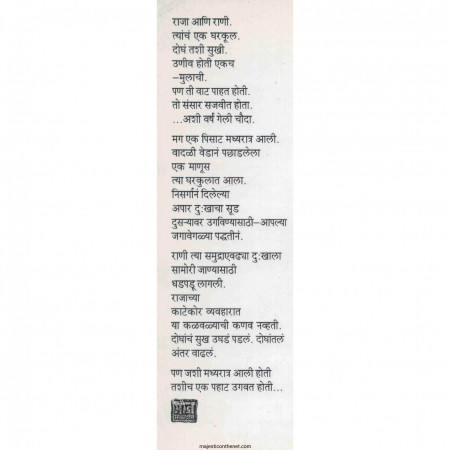 राजा आणि राणी.
त्यांचं एक घरकूल.
दोघं तशी सुखी.
उणीव होती एकच
–मुलाची.
पण ती वाट पाहत होती.
तो संसार सजवीत होता.
...अशी वर्षं गेली चौदा.
मग एक पिसाट मध्यरात्र आली.
वादळी वेडानं पछाडलेला
एक माणूस
त्या घरकुलात आला.
निसर्गानं दिलेल्या
अपार दु:खाचा सूड
दुसऱ्यावर उगविण्यासाठी–आपल्या
जगावेगळ्या पद्धतीनं.
राणी त्या समुद्राएवढ्या दु:खाला
सामोरी जाण्यासाठी
धडपडू लागली.
राजाच्या
काटेकोर व्यवहारात
या कळवळ्याची कणव नव्हती.
दोघांचं सुख उघडं पडलं. दोघांतलं
अंतर वाढलं.
पण जशी मध्यरात्र आली होती
तशीच एक पहाट उगवत होती...
majesticonthenet.com